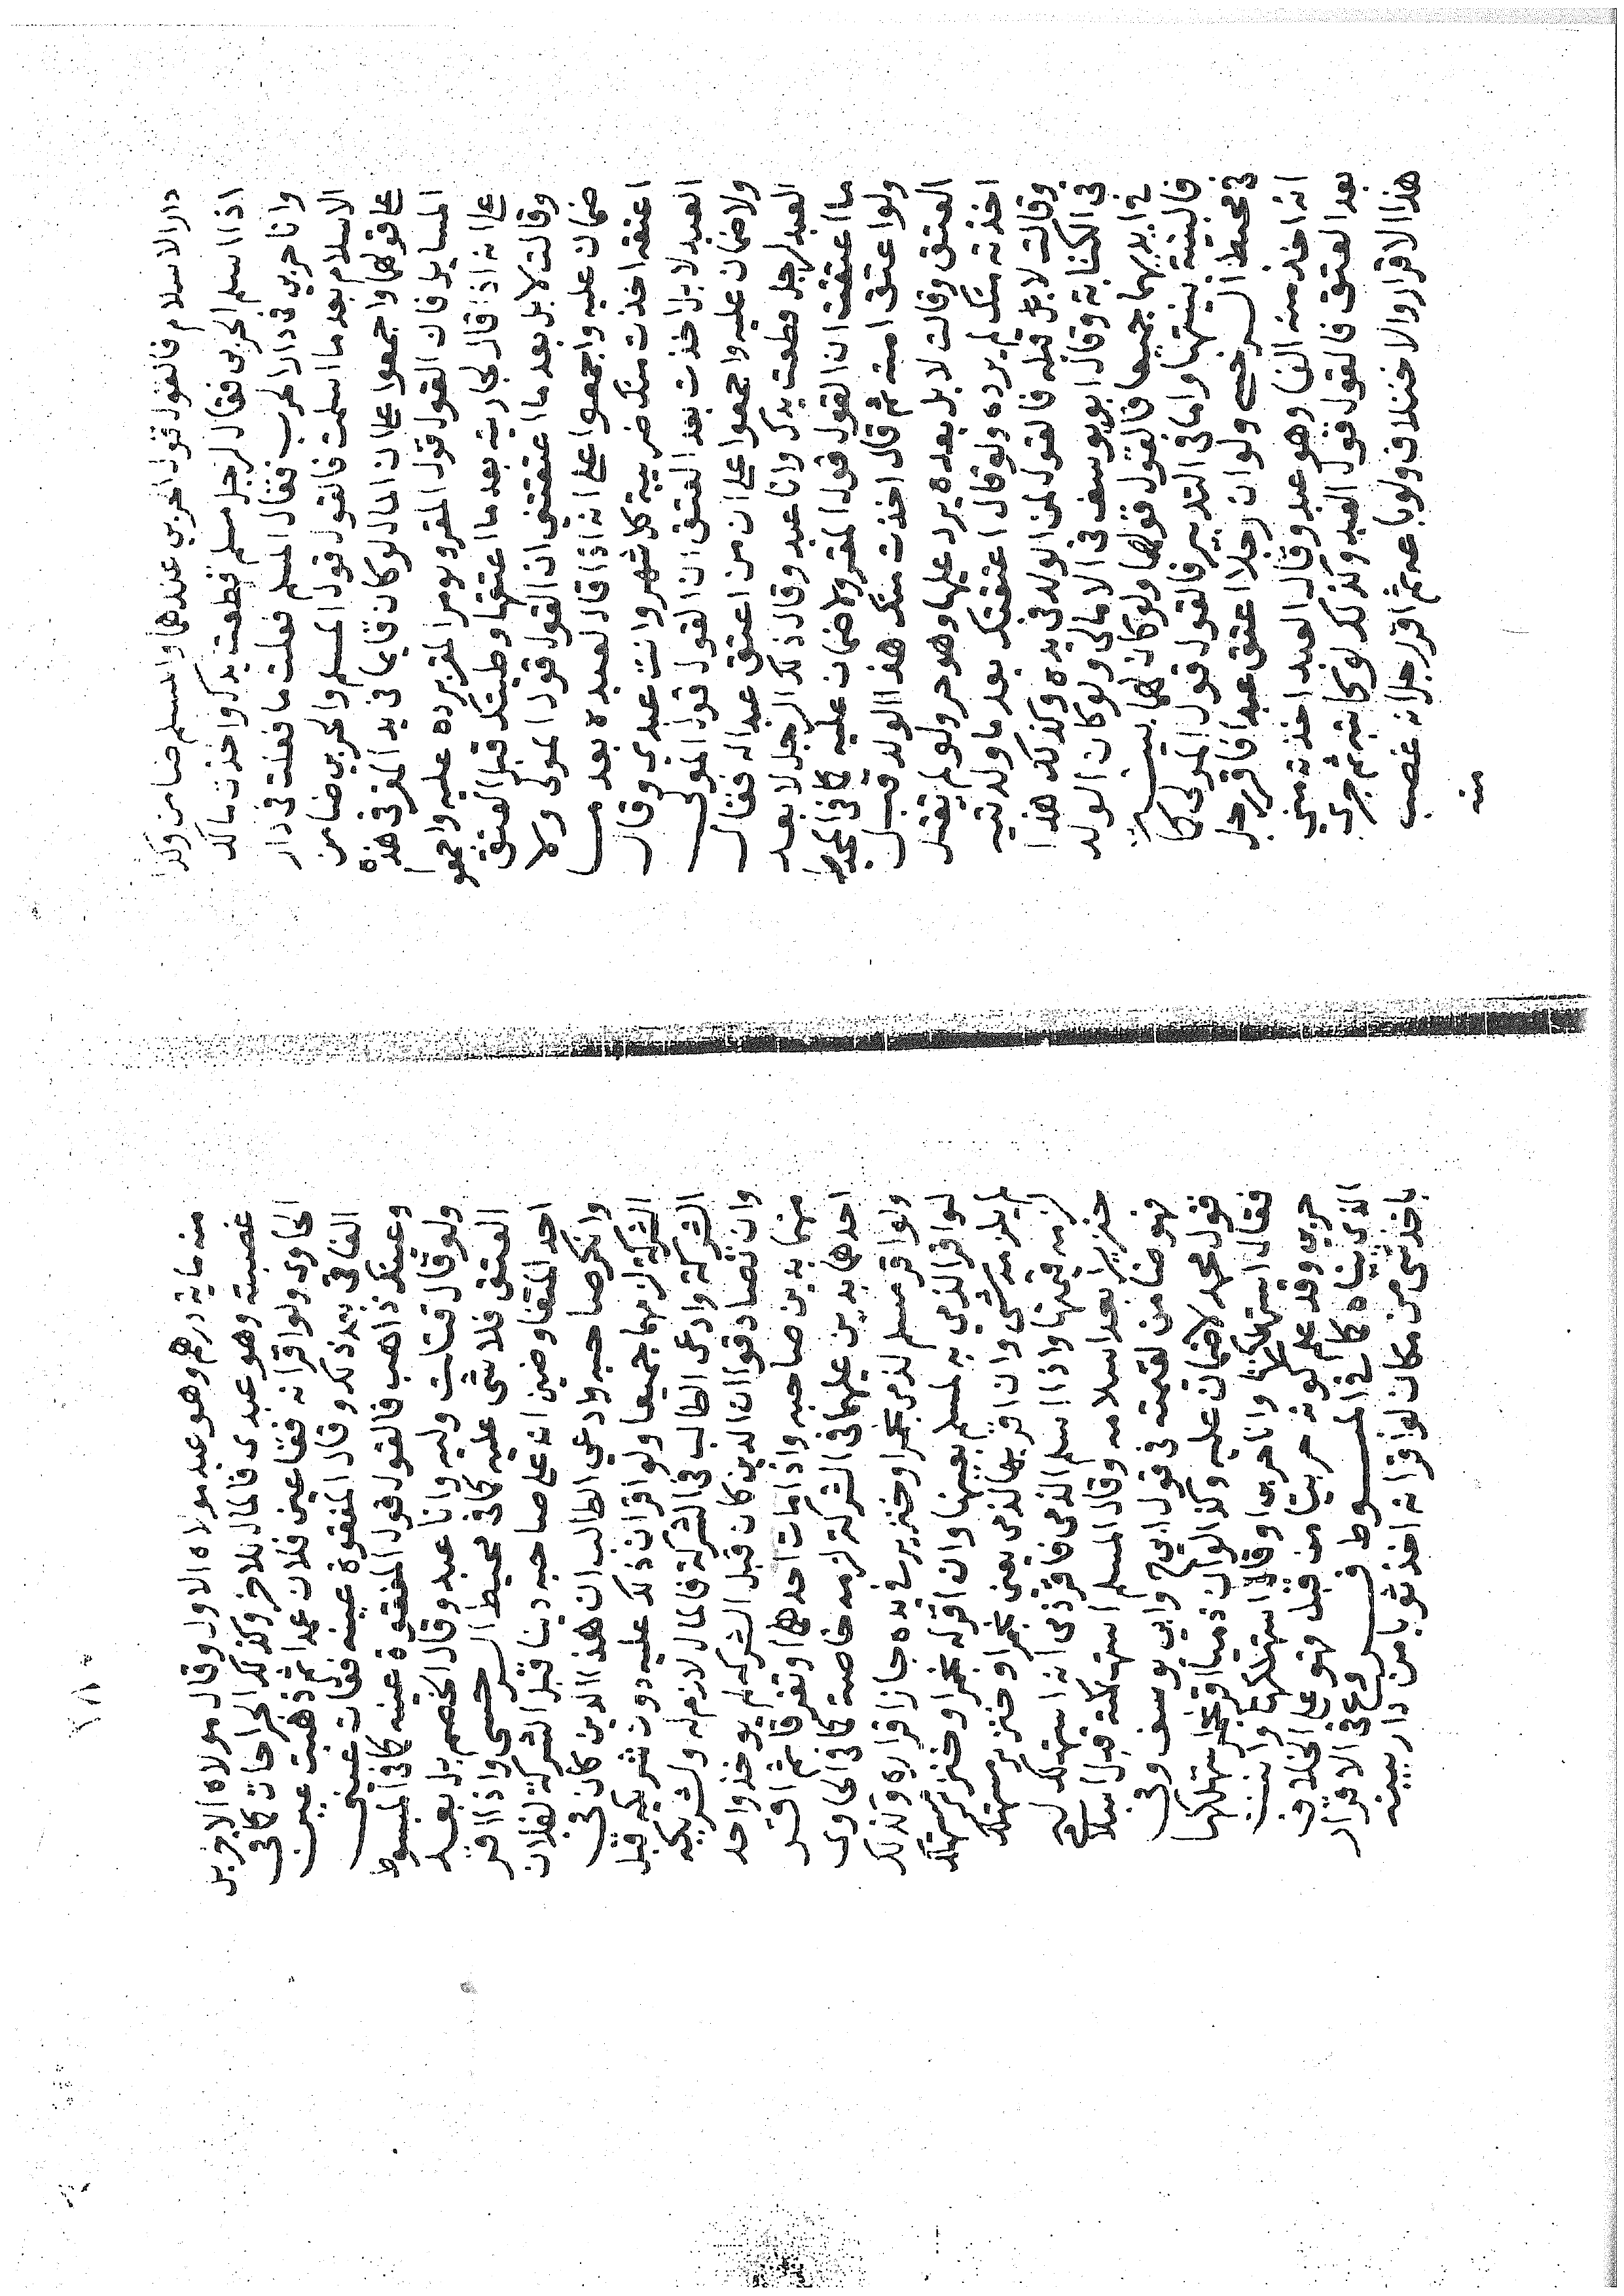 دار الاسلام فالقول قول الحربي عندهما والمسلم ضامن وكذا
اذا اسلم الحربي فقال لرجل مسلم قطعت يدك واخذت مالك
وانا حربي في دار الحرب فقال المسلم فعلت ما فعلت في دار
الاسلام بعد ما اسلمت فالقول قول المسلم والحربي ضامن
على قولهما واجمعوا على ان المال لو كان قايما في يد المقر في هذه
المسايل فان القول قول المقر ويومر المقر برده عليه واجمعوا
على انه اذا قال لجاريته بعد ما اعتقها وطيتك قبل العتق
وقالت لا بل بعد ما اعتقتني ان القول قول المولى ولا
ضمان عليه واجمعوا على انه اذا قال لعبده بعد ما
اعتقه اخذت منك ضريبة كل شهر وانت عبدي وقال
العبد لا بل اخذت بعد العتق ان القول قول المولى
ولا ضمان عليه واجمعوا على ان من اعتق عبدا له فقال
العبد لرجل قطعت يدك وانا عبد وقال ذلك الرجل لا بعد
ما اعتقت ان القول قول المقر ولا ضمان عليه كما في المحيط
ولو اعتق امته ثم قال اخذت منك هذا الولد قبل
العتق وقالت لا بل بعده يرد عليها وهو حر ولو لم يقل
اخذته منك لم يرده ولو قال اعتقتك بعد ما ولدتيه
وقالت لا بل قبله فالقول لمن الولد في يده وكذلك هذا
في الكتابة وقال ابو يوسف في الامالي ولو كان الولد
في ايديهما جميعا فالقول قولها ولو كان لهما بينة
فالبينة بينتها واما في التدبير فالقول قول المولى كما
في محيط السرخسي ولو ان رجلا اعتق عبدا فاقر رجل
انه اخذ منه الفا وهو عبد وقال العبد اخذته مني
بعد العتق فالقول قول العبد وكذلك لو كاتبه ثم جرى
هذا الاقرار والاختلاف ولو باعه ثم اقر رجل انه غصب
منه
منه ماية درهم وهو عبد مولاه الاول وقال مولاه الاخر بل
غصبته وهو عبدي فالمال للاخر وكذلك الجراحات كما في
الحاوي ولو اقر انه فقا عين فلان عمدا ثم ذهبت عين
الفاقي بعد ذلك وقال المفقوة عينه فقات عيني
وعينك ذاهب فالقول قول المفقوة عينه كما في المبسوط
ولو قال قتلت وليه وانا عبد وقال الخصم بل بعد
العتق فلا شي عليه كما في محيط السرخسي واذا اقر
احد المتفاوضين ان على صاحبه دينا قبل الشركة لفلان
وانكر صاحبه وادعى الطالب ان هذا الدين كان في
الشركة لزمهما جميعا ولو اقر ان ذلك عليه دون شريكه قبل
الشركة وادعى الطالب في الشركة فالمال لازم له ولشريكه
وان تصادقوا ان الدين كان قبل الشركة لم يوخذ واحد
منهما بدين صاحبه واذا مات احدهما او تفرقا ثم اقر
احدهما بدين عليهما في الشركة لزمه خاصة كما في الحاوي
ولو اقر مسلم لذمي بخمر او خنزير في يده جاز اقراره وكذلك
لو اقر الذمي به لمسلم بعينها وان اقر له بخمر او خنزير مستهلك
لم يلزمه شي وان اقر بها لذمي يعني بخمر او خنزير مستهلك
لزمه قيمتها واذا اسلم الذمي فاقر ذمي انه استهلك له
خنزيرا بعد اسلامه وقال المسلم استهلكته قبل اسلامي
فهو ضامن لقيمته في قول ابي ح وابي يوسف وفي
قول محمد لا ضمان عليه وكذا لو ان ذميا اقر بخمر استهلكها
فقال استهلكتها وانا حربي وقال استهلكتها وانت
حربي وقد علم كونه حربيا من قبل فهو على الخلاف
الذي بيناه كما في المبسوط فروع في الاقرار
باخذ شي من مكان لو اقر انه اخذ ثوبا من دار بينه